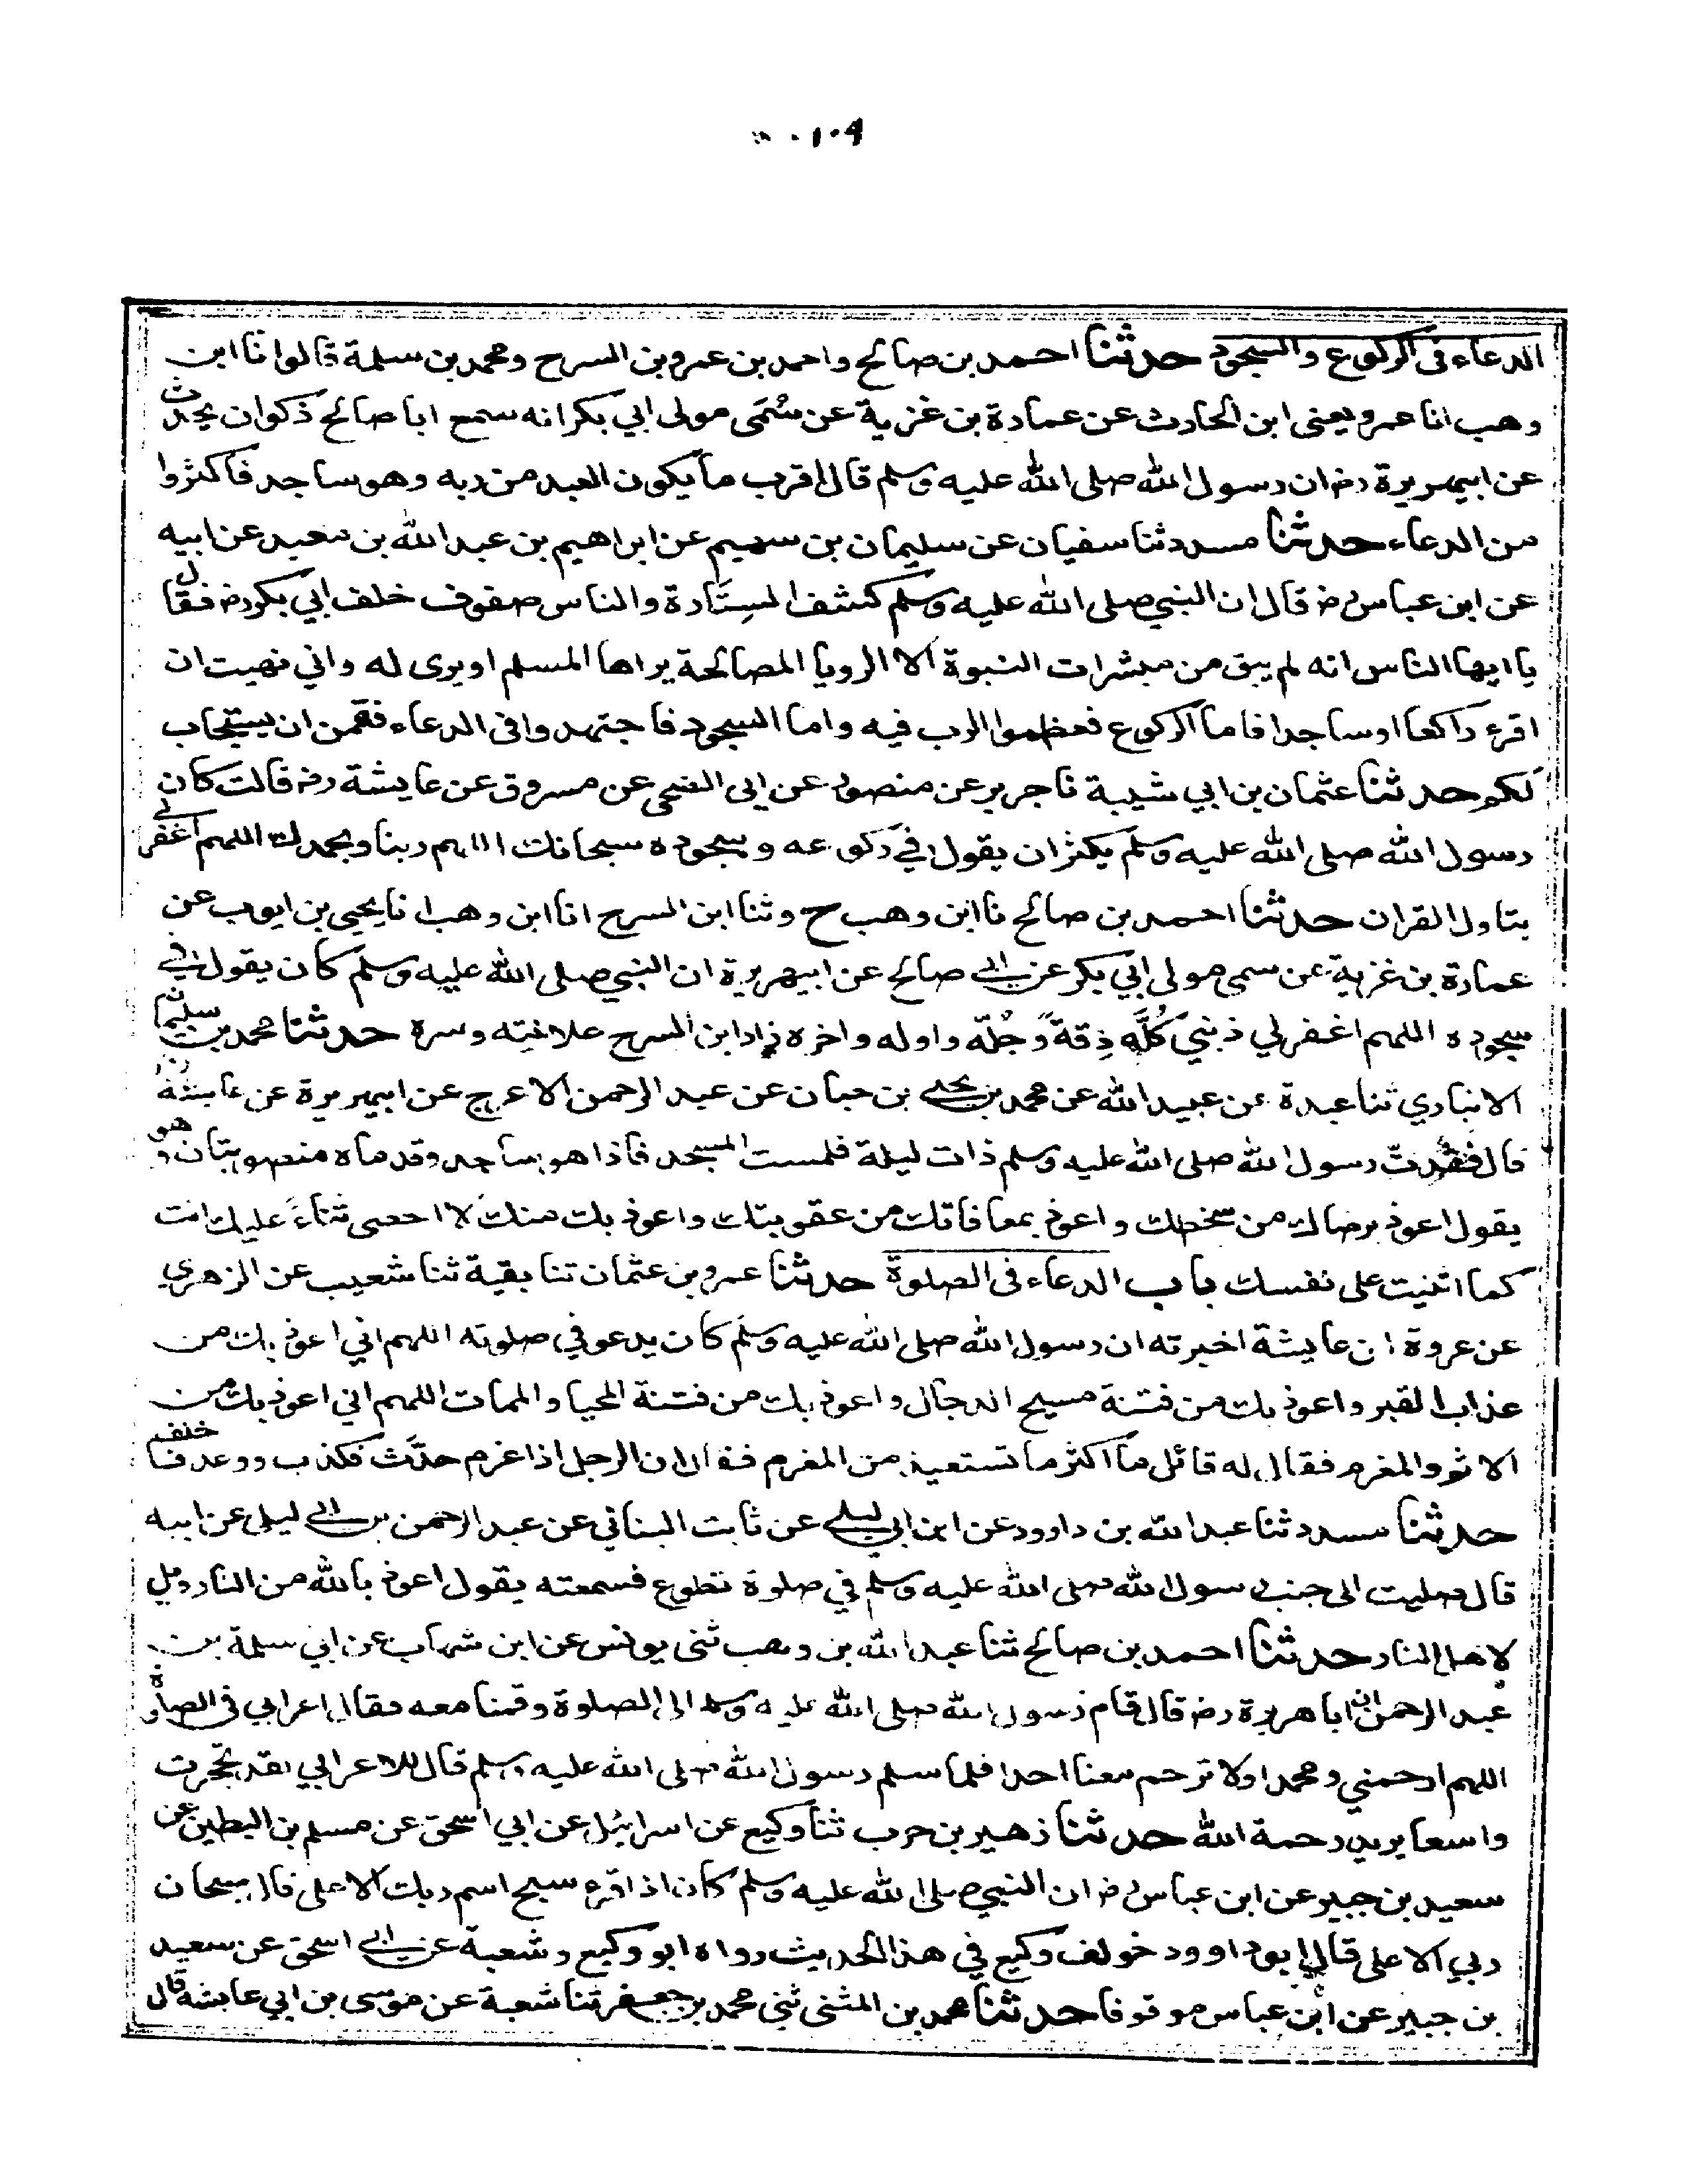 ١٠٩
الدعاء في الركوع والسجود حدثنا احمد بن صالح واحمد بن عمرو بن السرح ومحمد بن سلمة قالوا نا ابن
وهب انا عمرو يعنى ابن الحارث عن عمارة بن غزية عن سُمَى مولى ابي بكر انه سمع ابا صالح ذكوان يحدث
عن ابيهريرة رض ان رسول الله صلى الله عليه وسلم قال اقرب ما يكون العبد من ربه وهو ساجد فاكثروا
من الدعاء حدثنا مسدد ثنا سفيان عن سليمان بن سهيم عن ابراهيم بن عبد الله بن معبد عن ابيه
عن ابن عباس رض قال ان النبي صلى الله عليه وسلم كشف الستارة والناس صفوف خلف ابي بكر رض فقال
يا ايها الناس انه لم يبق من مبشرات النبوة الا الرويا الصالحة يراها المسلم او يرى له واني نهيت ان
اقرء راكعا او ساجدا فاما الركوع فعظموا الرب فيه واما السجود فاجتهدوا في الدعاء فقمن ان يستجاب
لكم حدثنا عثمان بن ابي شيبة نا جرير عن منصور عن ابى الضحى عن مسروق عن عايشة رض قالت كان
رسول الله صلى الله عليه وسلم يكثر ان يقول في ركوعه وسجوده سبحانك اللهم ربنا وبحمدك اللهم اغفر لي
يتاول القران حدثنا احمد بن صالح نا ابن وهب ح وثنا ابن السرح انا ابن وهب انا يحيى بن ايوب عن
عمارة بن غزية عن سمى مولى ابي بكر عن ابي صالح عن ابيهريرة ان النبي صلى الله عليه وسلم كان يقول في
سجوده اللهم اغفر لي ذنبي كُلَّه دِقةً وجُلّه واوله واخره زاد ابن السرح علانيته وسره حدثنا محمد بن سليمان
الانباري ثنا عبدة عن عبيد الله عن محمد بن يحيى بن حبان عن عبد الرحمن الاعرج عن ابيهريرة عن عايشة
قال فقدت رسول الله صلى الله عليه وسلم ذات ليلة فلمست المسجد فاذا هو ساجد وقدماه منصوبتان وهو
يقول اعوذ برضاك من سخطك واعوذ بمعافاتك من عقوبتك واعوذ بك منك لا احصى ثناءً عليك انت
كما اثنيت على نفسك باب الدعاء في الصلوة حدثنا عمرو بن عثمان ثنا بقية ثنا شعيب عن الزهري
عن عروة ان عايشة اخبرته ان رسول الله صلى الله عليه وسلم كان يدعو في صلوته اللهم اني اعوذ بك من
عذاب القبر واعوذ بك من فتنة مسيح الدجال واعوذ بك من فتنة المحيا والممات اللهم اني اعوذ بك من
الاثم والمغرم فقال له قائل ما اكثر ما تستعيذ من المغرم فقال ان الرجل اذا غرم حدَّث فكذب ووعد فاخلف
حدثنا مسدد ثنا عبد الله بن داوود عن ابن ابي ليلى عن ثابت البناني عن عبد الرحمن بن ابي ليلى عن ابيه
قال صليت الى جنب رسول الله صلى الله عليه وسلم في صلوة تطوع فسمعته يقول اعوذ بالله من النار ويل
لاهل النار حدثنا احمد بن صالح ثنا عبد الله بن وهب ثنى يونس عن ابن شهاب عن ابي سلمة بن
عبد الرحمن ان ابا هريرة رض قال قام رسول الله صلى الله عليه وسلم الى الصلوة وقمنا معه فقال اعرابي في الصلوة
اللهم ارحمني ومحمدا ولا ترحم معنا احدا فلما سلم رسول الله صلى الله عليه وسلم قال للاعرابي لقد تحجرت
واسعا يريد رحمة الله حدثنا زهير بن حرب ثنا وكيع عن اسرائيل عن ابي اسحق عن مسلم بن البطين عن
سعيد بن جبير عن ابن عباس رض ان النبي صلى الله عليه وسلم كان اذا قرء سبح اسم ربك الاعلى قال سبحان
ربي الاعلى قال ابو داوود خولف وكيع في هذا الحديث رواه ابو وكيع وشعبة عن ابي اسحق عن سعيد
بن جبير عن ابن عباس موقوفا حدثنا محمد بن المثنى ثني محمد بن جعفر ثنا شعبة عن موسى بن ابي عايشة قال